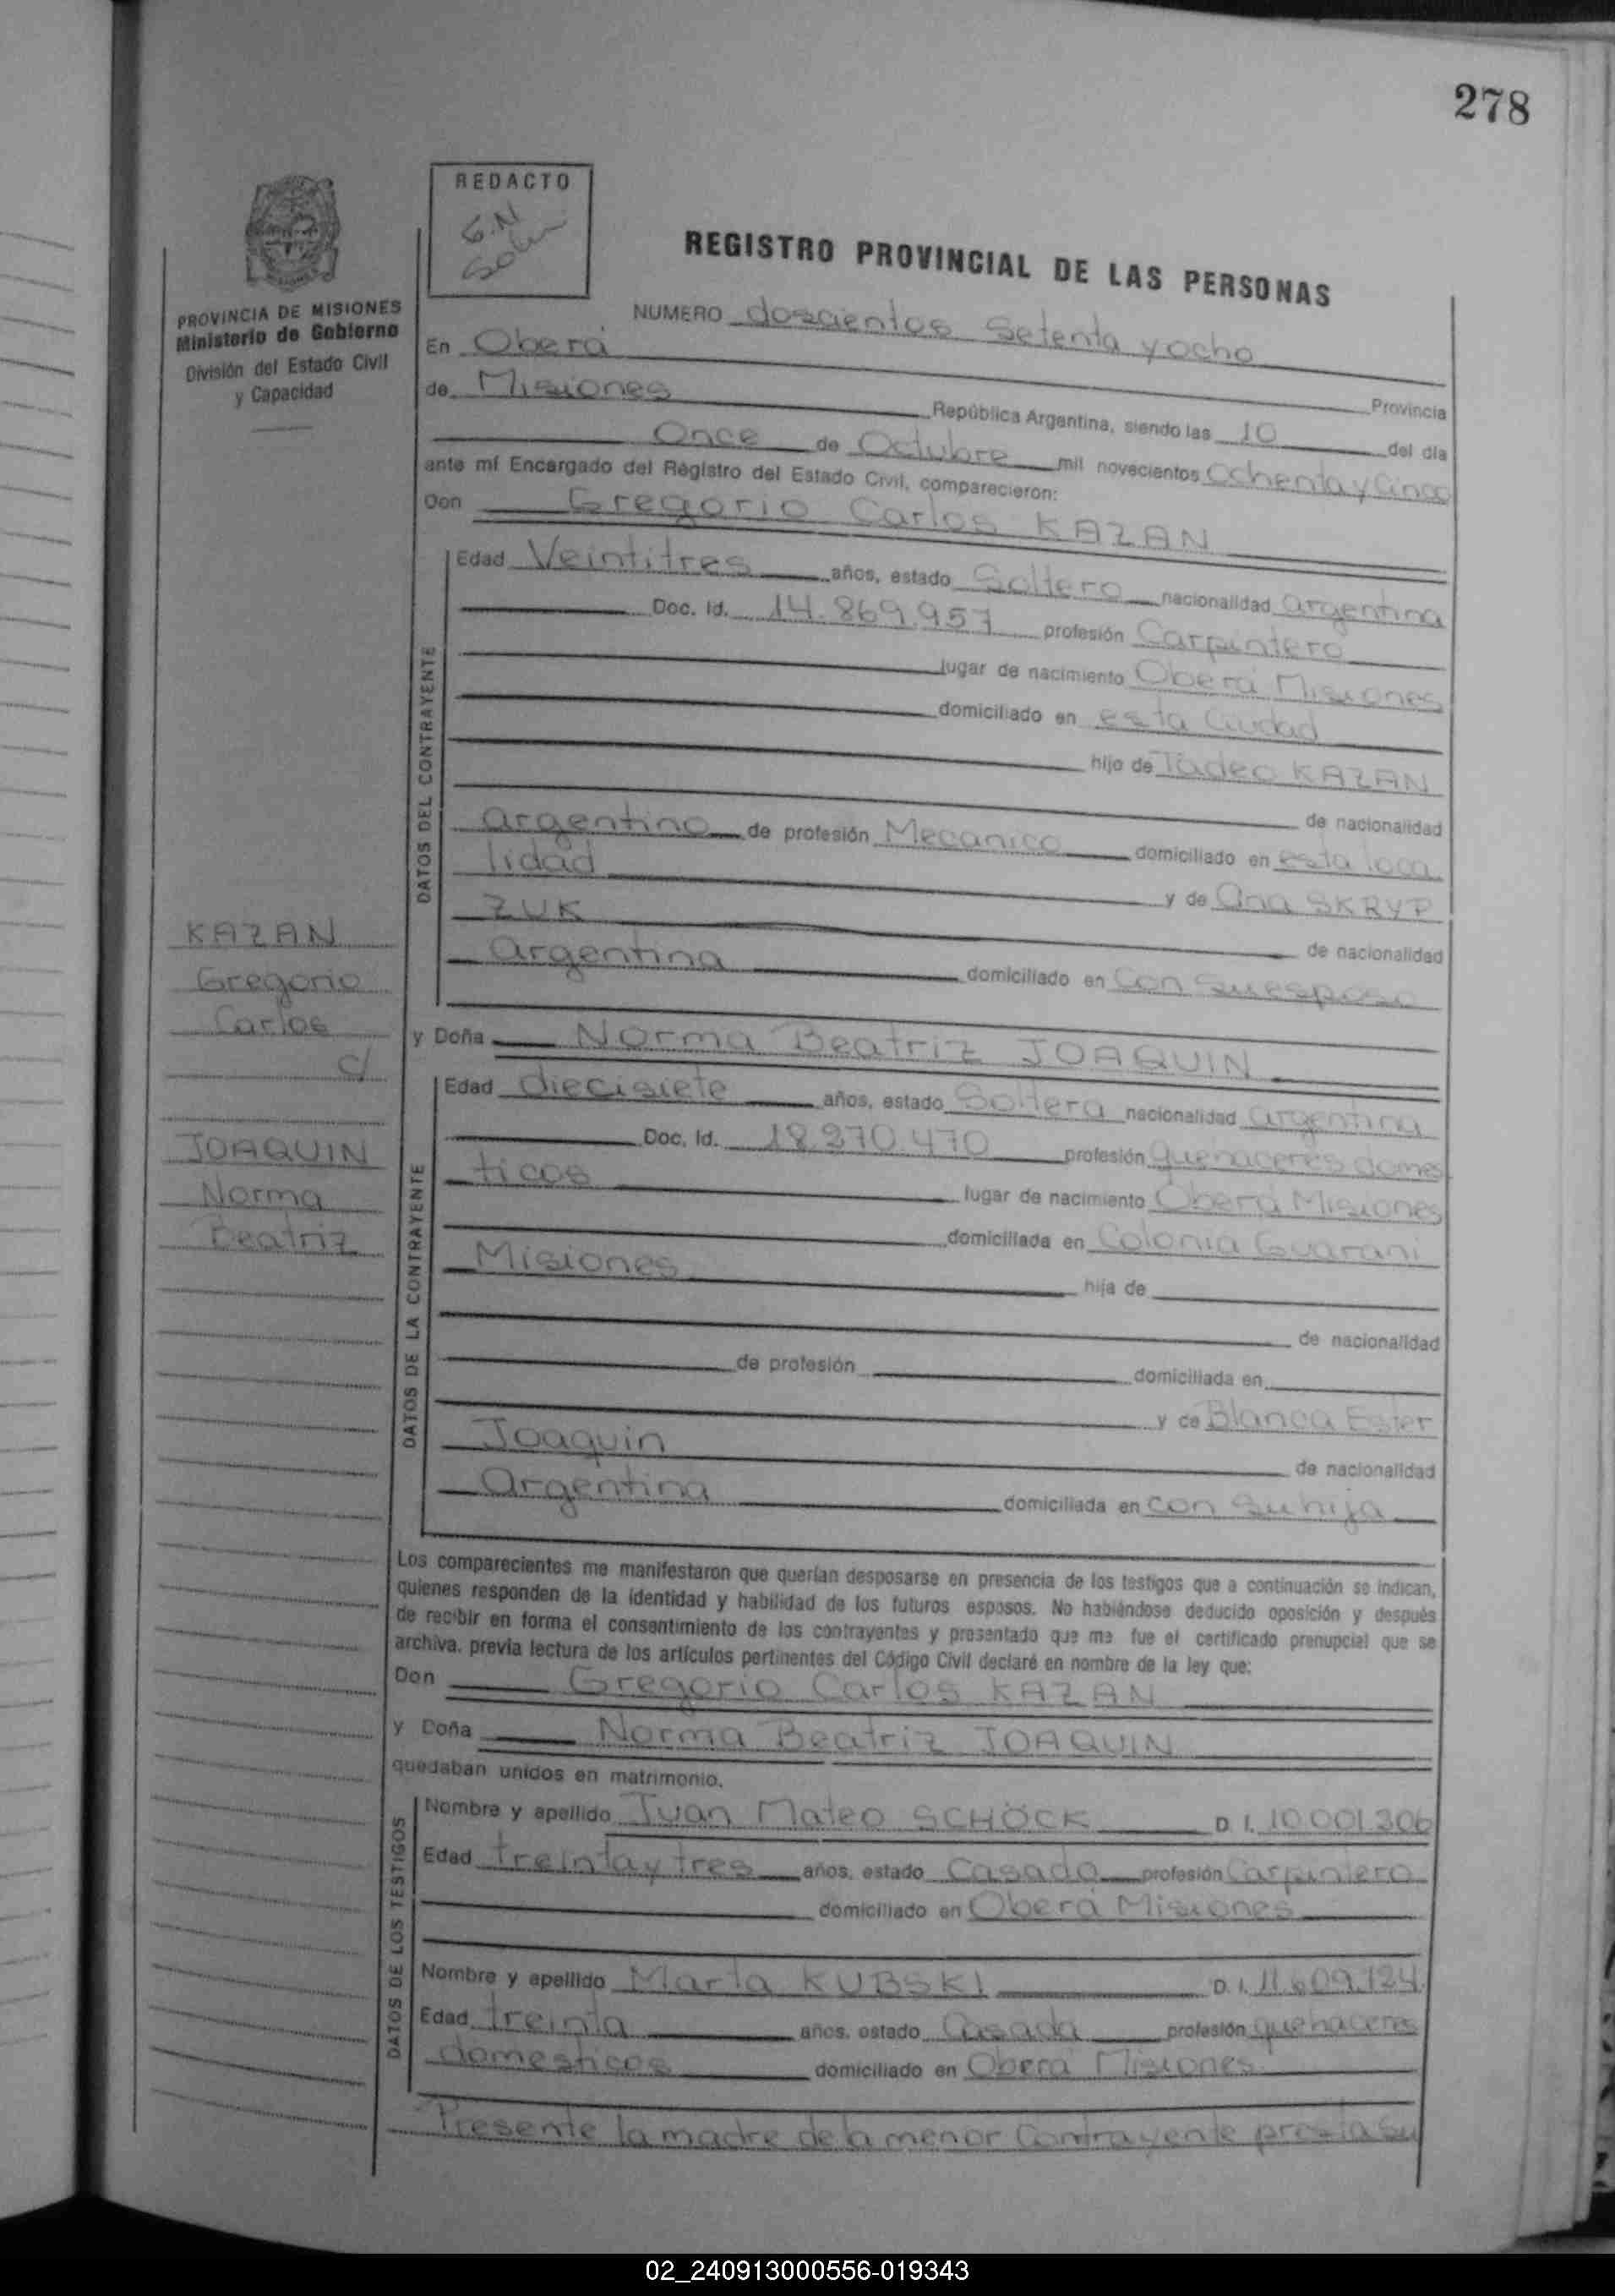 278
REDACTO
G.N
REGISTRO PROVINCIAL DE LAS PERSONAS
PROVINCIA DE MISIONES
Ministerio de Gobierno
División del Estado Civil
y Capacidad
NUMERO doscientos setenta y ocho
En Oberá Provincia
de Misiones República Argentina, siendo las 10 del día
Once de Octubre mil novecientos Ochenta y Cinco
ante mí Encargado del Registro del Estado Civil, comparecieron:
Don Gregorio Carlos KAZAN
DATOS DEL CONTRAYENTE
Edad Veintitres años, estado Soltero nacionalidad argentina
Doc. Id. 14.869.957 profesión Carpintero
lugar de nacimiento Oberá Misiones
domiciliado en esta Ciudad
hijo de Tadeo KAZAN
de nacionalidad
argentino de profesión Mecanico domiciliado en esta loca
lidad y de Ana SKRYP
ZUK de nacionalidad
argentina domiciliado en con su esposo
KAZAN
Gregorio
Carlos
c/
JOAQUIN
Norma
Beatriz
y Doña Norma Beatriz JOAQUIN
DATOS DE LA CONTRAYENTE
Edad diecisiete años, estado Soltera nacionalidad argentina
Doc. Id. 18.870.470 profesión quehaceres domes
ticos lugar de nacimiento Oberá Misiones
domiciliada en Colonia Guarani
Misiones hija de
de nacionalidad
de profesión domiciliada en
y de Blanca Ester
Joaquin de nacionalidad
Argentina domiciliada en con su hija
Los comparecientes me manifestaron que querían desposarse en presencia de los testigos que a continuación se indican,
quienes responden de la identidad y habilidad de los futuros esposos. No habiéndose deducido oposición y después
de recibir en forma el consentimiento de los contrayentes y presentado que me fue el certificado prenupcial que se
archiva, previa lectura de los artículos pertinentes del Código Civil declaré en nombre de la ley que:
Don Gregorio Carlos KAZAN
y Doña Norma Beatriz JOAQUIN
quedaban unidos en matrimonio.
DATOS DE LOS TESTIGOS
Nombre y apellido Juan Mateo SCHÖCK D. I. 10.001.306
Edad treinta y tres años, estado Casado profesión Carpintero
domiciliado en Oberá Misiones
Nombre y apellido Marta KUBSKI D. I. 11.609.124
Edad treinta años, estado Casada profesión quehaceres
domesticos domiciliado en Oberá Misiones
Presente la madre de la menor Contrayente presta su
02_240913000556-019343